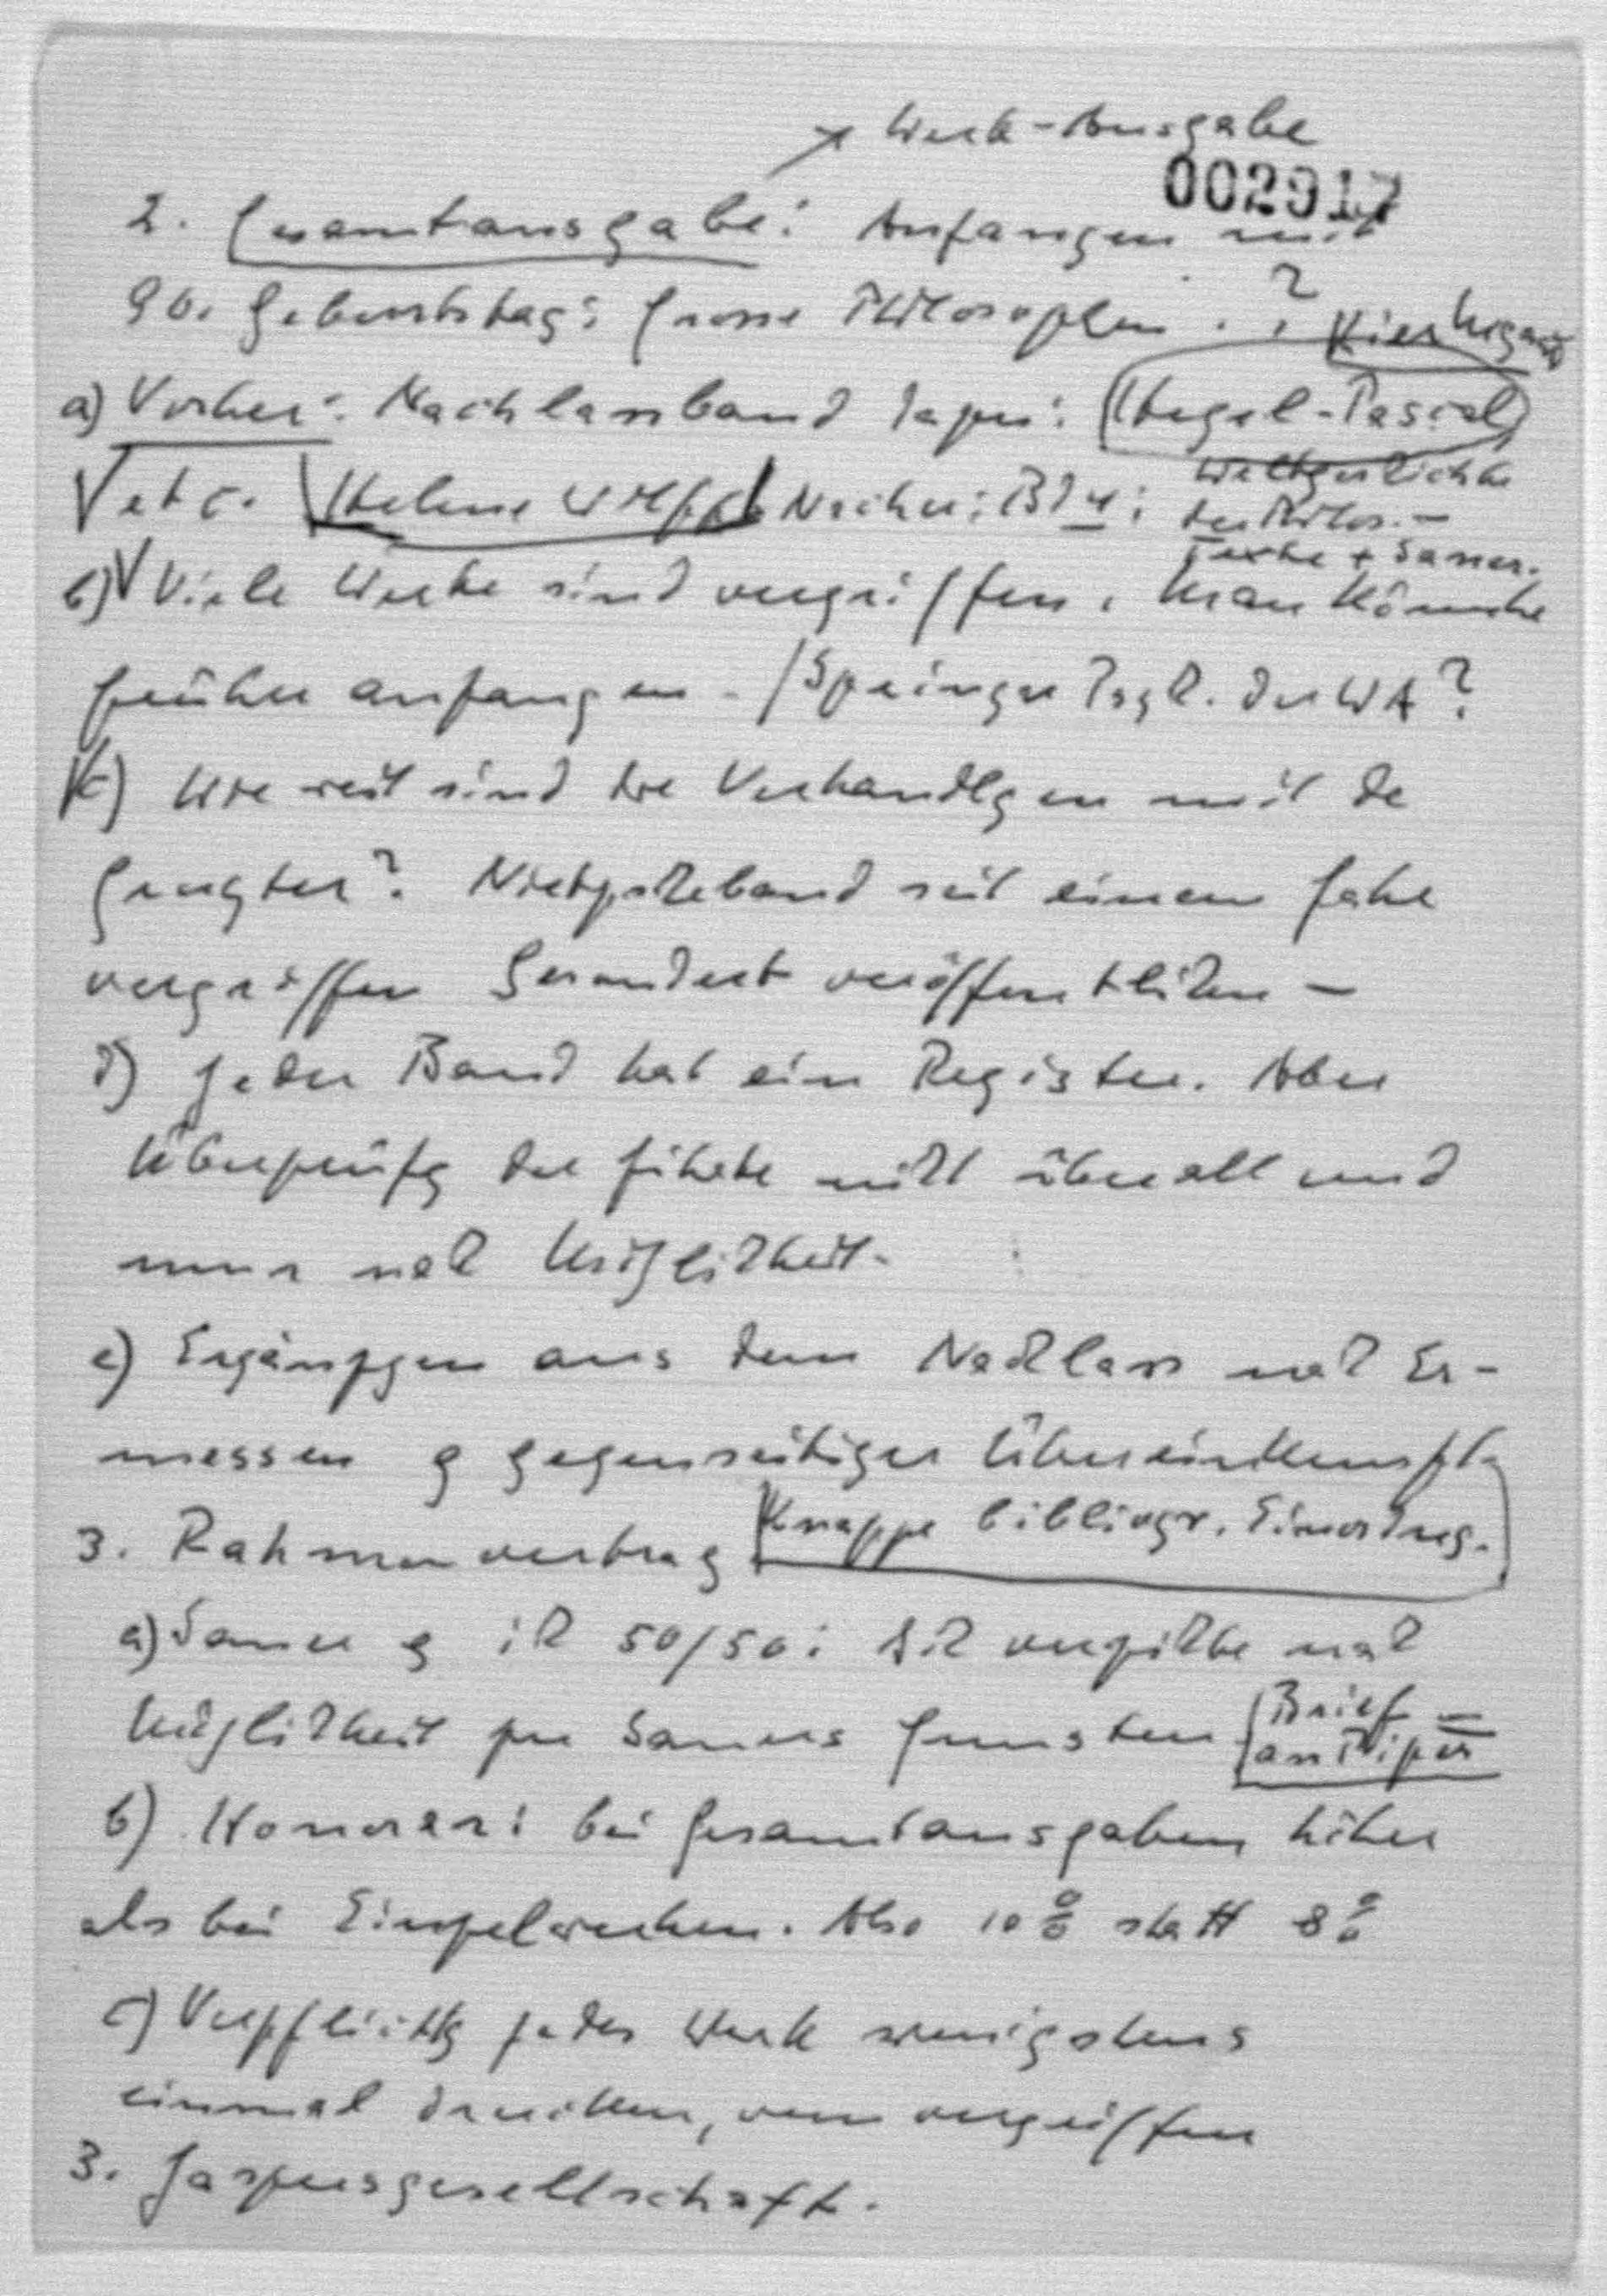 Werk-Ausgabe
002917
2. Gesamtausgabe: Anfangen mit
90. Geburtstag: Grosse Philosophen. ?
a) Vorher: Nachlassband (Hegel-Pascal)
etc. Helene Wolff Nachher: Bd 4: Weltgeschichte
der Philos. –
Texte + Saner.
b) Viele Werke sind vergriffen, man könnte
früher anfangen – / Springer bzgl. der WA?
c) Wie weit sind die Verhandlgen mit de
Gruyter? Nietzscheband seit einem Jahr
vergriffen Gesondert veröffentlichen –
d) Jeder Band hat ein Register. Aber
Überprüfg der Zitate nicht überall und
nur nach Möglichkeit.
e) Ergänzgen aus dem Nachlass nach Er-
messen & gegenseitiger Übereinkunft.
Knappe bibliogr. Einordng.
3. Rahmenvertrag
a) Saner & ich 50/50: Ich verzichte nach
Möglichkeit zu Saners Gunsten
Brief –
an Piper
b) Honorar: bei Gesamtausgaben höher
als bei Einzelwerken. Also 10% statt 8%
c) Verpflichtg jedes Werk wenigstens
einmal drucken, wenn vergriffen
3. Jaspersgesellschaft.